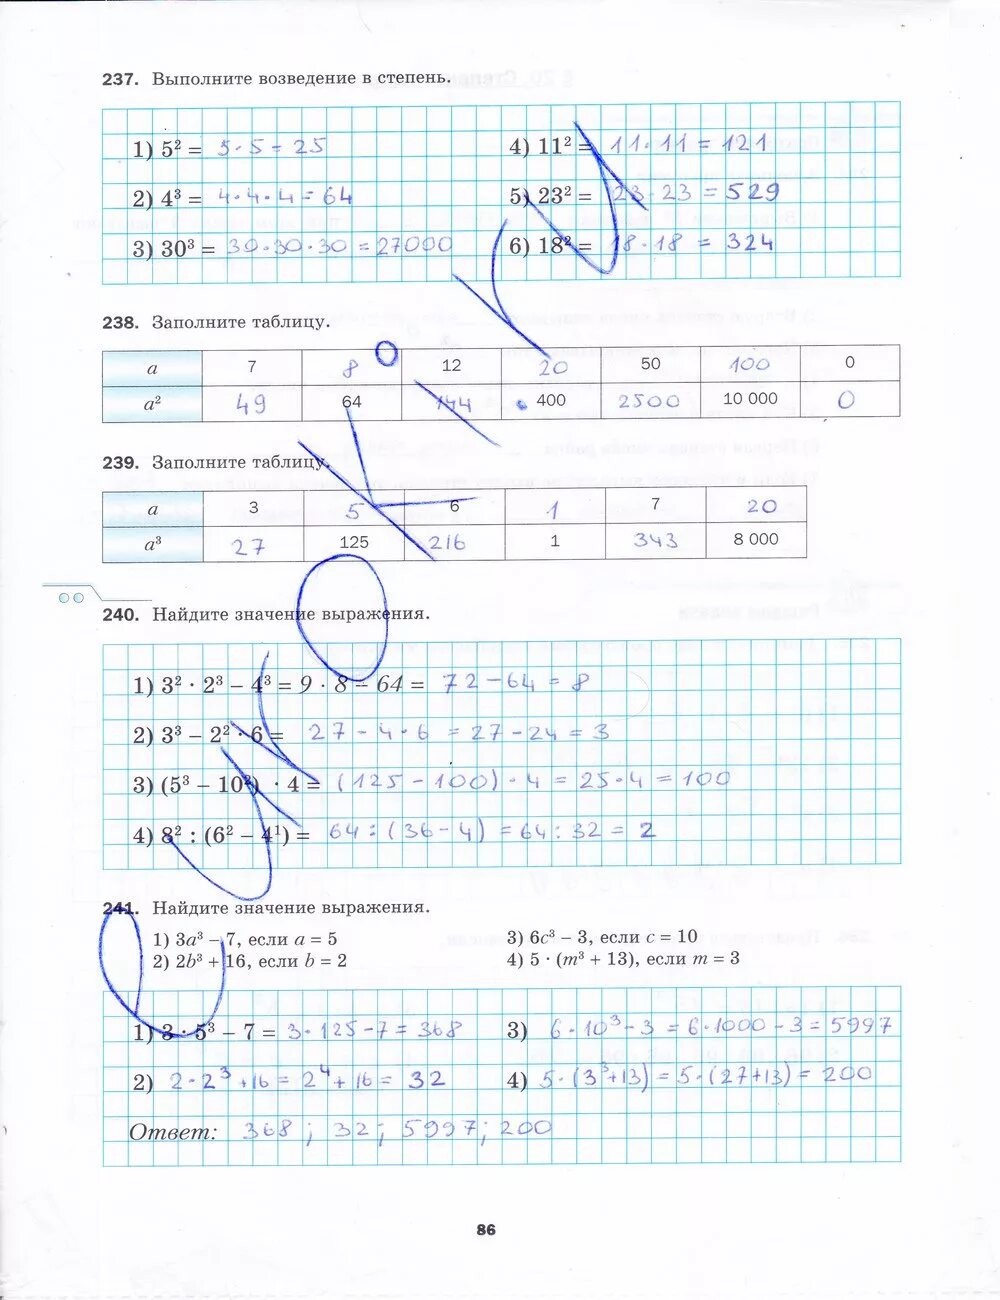 237. Выполните возведение в степень.
1) 5² = 5·5 = 25
4) 11² = 11·11 = 121
2) 4³ = 4·4·4 = 64
5) 23² = 23·23 = 529
3) 30³ = 30·30·30 = 27000
6) 18² = 18·18 = 324
238. Заполните таблицу.
a 7 8 12 20 50 100 0
a² 49 64 144 400 2500 10 000 0
239. Заполните таблицу.
a 3 5 6 1 7 20
a³ 27 125 216 1 343 8 000
240. Найдите значение выражения.
1) 3² · 2³ – 4³ = 9 · 8 – 64 = 72 – 64 = 8
2) 3³ – 2² · 6 = 27 – 4·6 = 27 – 24 = 3
3) (5³ – 10²) · 4 = (125 – 100)·4 = 25·4 = 100
4) 8² : (6² – 4¹) = 64 : (36 – 4) = 64 : 32 = 2
241. Найдите значение выражения.
1) 3a³ – 7, если a = 5
3) 6c³ – 3, если c = 10
2) 2b³ + 16, если b = 2
4) 5 · (m³ + 13), если m = 3
1) 3 · 5³ – 7 = 3·125–7 = 368
3) 6·10³–3 = 6·1000–3 = 5997
2) 2·2³+16 = 2⁴+16 = 32
4) 5·(3³+13) = 5·(27+13) = 200
Ответ: 368; 32; 5997; 200
86